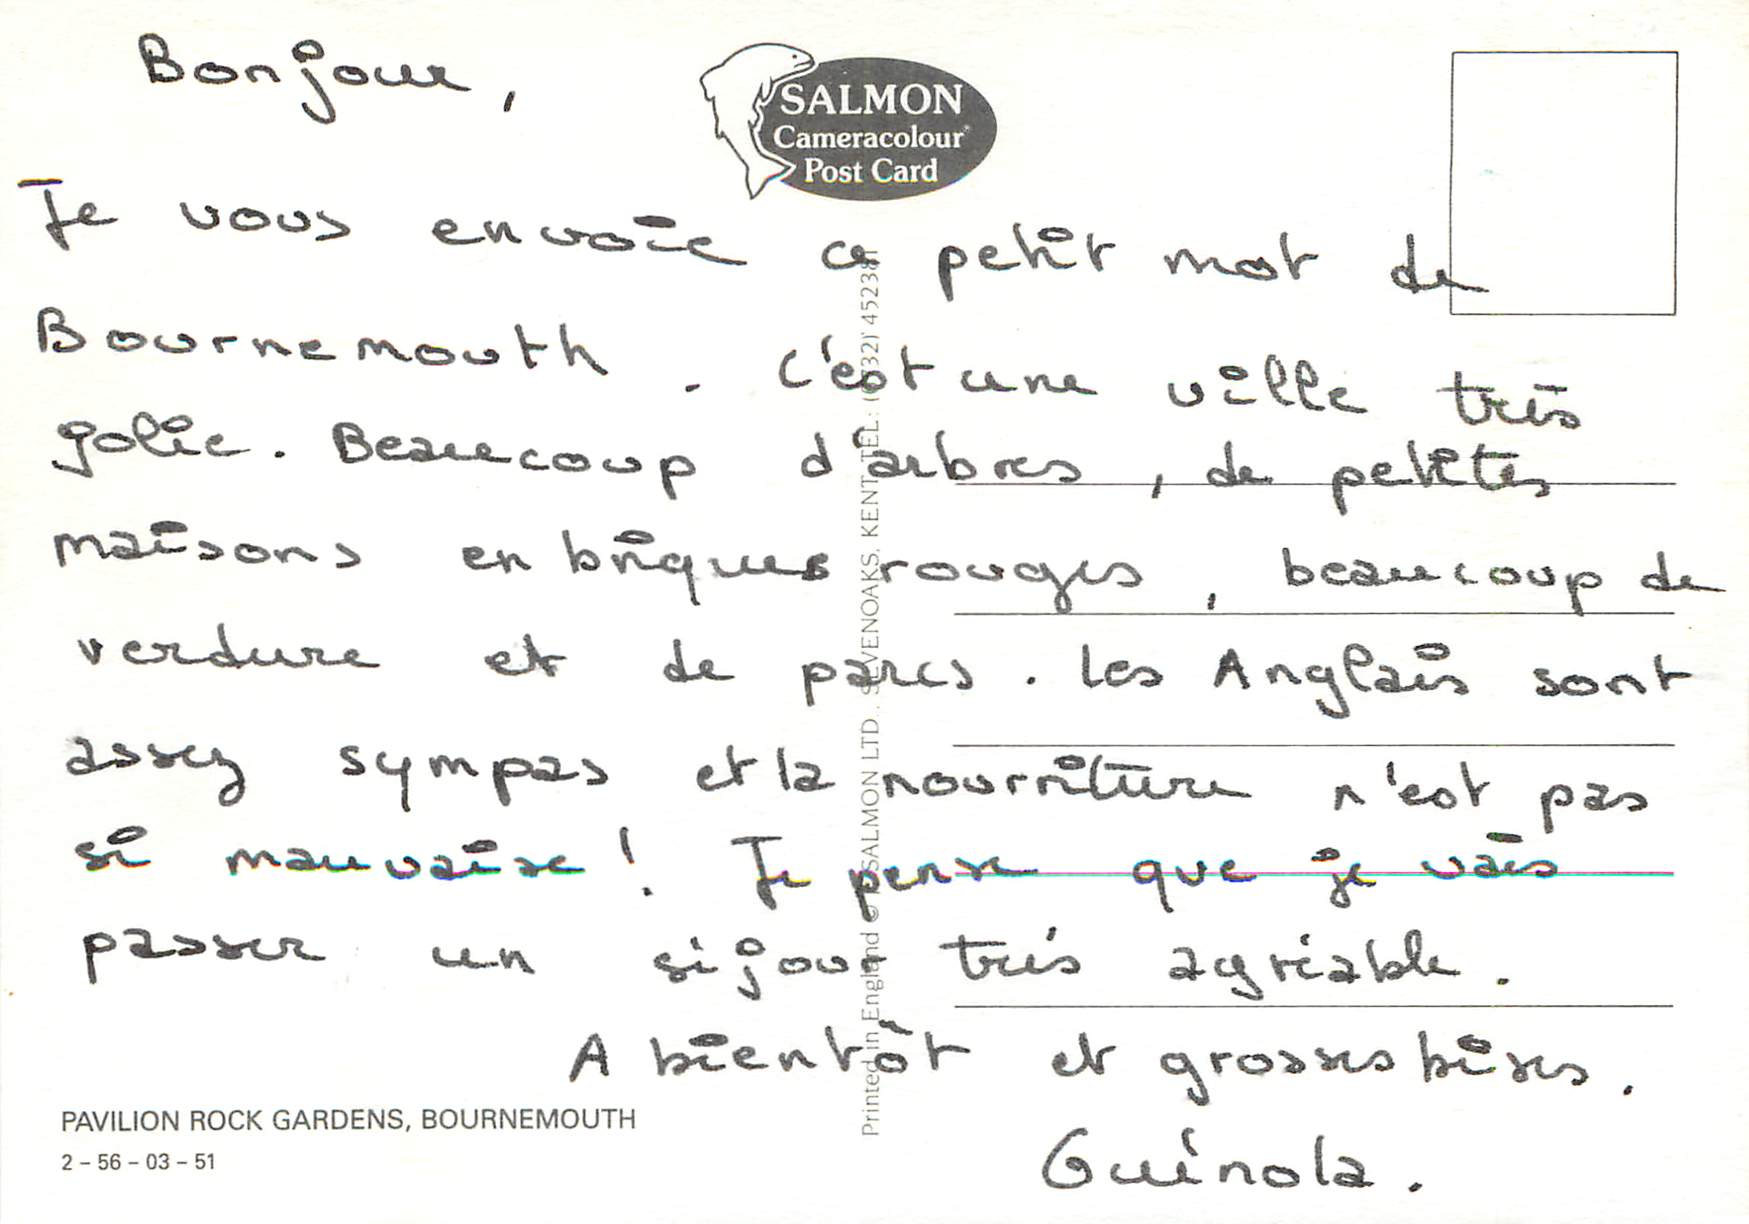 Bonjour,
SALMON
Cameracolour
Post Card
Je vous envoie ce petit mot de
Bournemouth. C'est une ville très
jolie. Beaucoup d'arbres, de petites
maisons en briques rouges, beaucoup de
verdure et de parcs. Les Anglais sont
assez sympas et la nourriture n'est pas
si mauvaise! Je pense que je vais
passer un séjour très agréable.
A bientôt et grosses bises.
Guénola.
PAVILION ROCK GARDENS, BOURNEMOUTH
2 – 56 – 03 – 51
Printed in England © SALMON LTD., SEVENOAKS, KENT. TEL: 452381